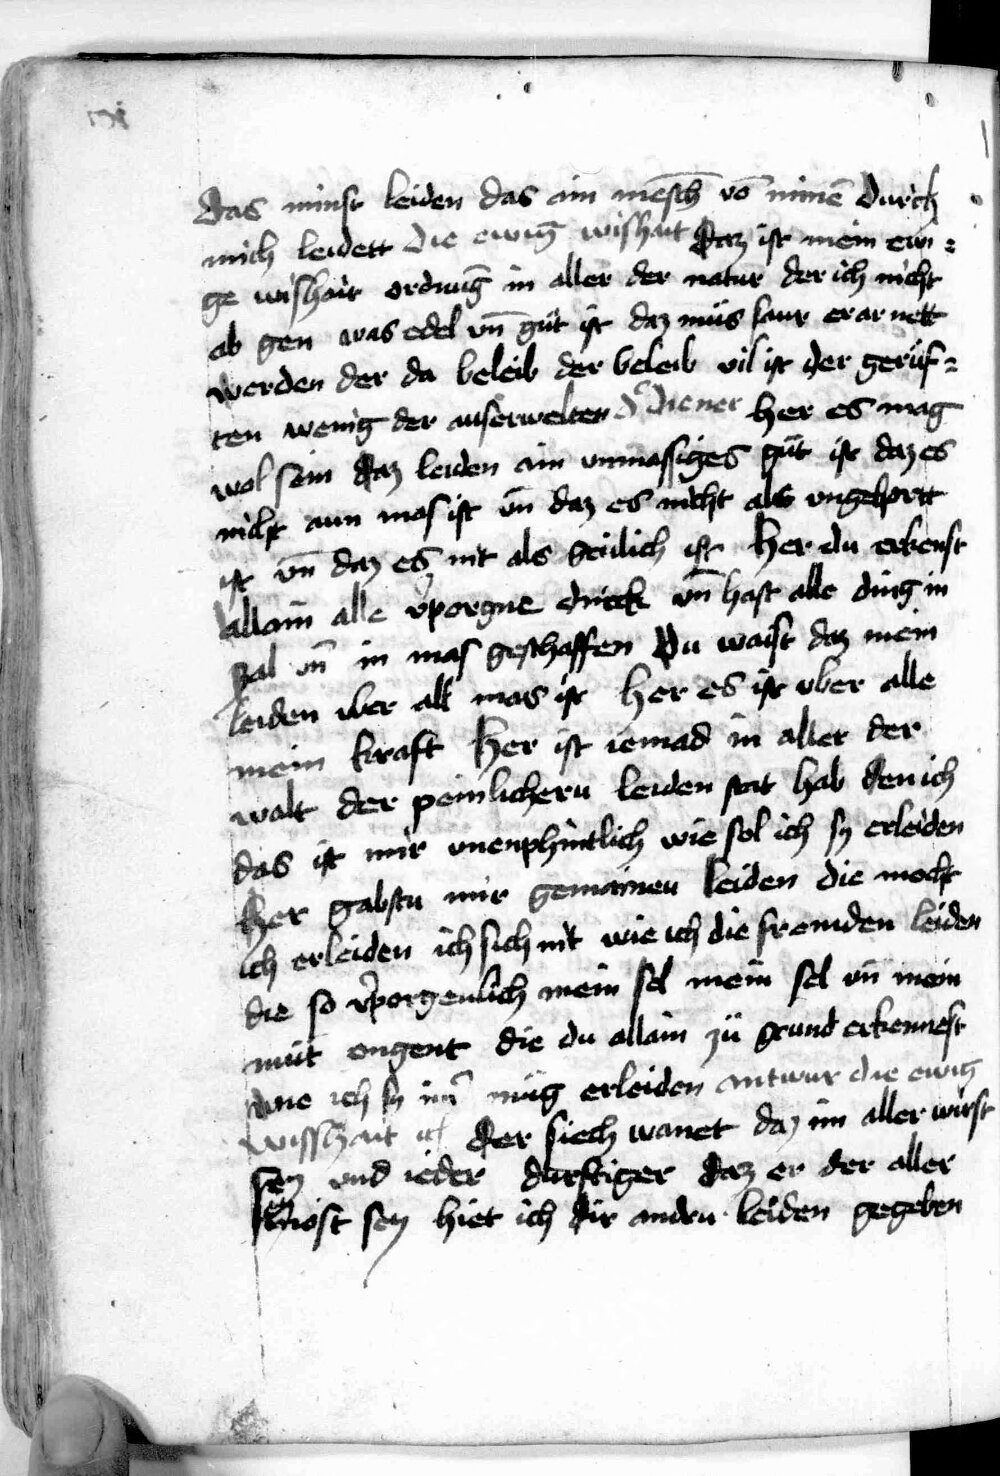 das minst leiden das ain mēsch vō minē durich
mich leidett die ewiḡ wishait Daz ist mein ewi =
ge wishait ordnuḡ in aller der natur der ich nicht
ab gen was edel vn̄ güt ist daz müs saur erarnett
werden der da beleib der beleib vil ist der gerüf =
ten wenig der auserwelten Dᵉ Diener her es mag
wol sein Daz leiden ain vnmassiges güt ist daz es
nicht aun mas ist vn̄ daz es nicht als vngehortt
ist vn̄ daz es nit als heilich ist her du erkenst
allain alle vʼporgne druck vn̄ hast alle ding in
zal vn̄ in mas geschaffen Du waist daz mein
leiden vber all mas ist her es ist vber alle
mein kraft her ist iemad in aller der
walt der peinlichern leiden stat hab den ich
das ist mir vnenphintlich wie sol ich sy erleiden
her gabstu mir gemainen leiden die mocht
ich erleiden ich sich nit wie ich die fremden leiden
die so vʼporgenlich mein sel mein sel vn̄ mein
müt engent die du allain zü grund erkennest
wie ich sy imʼ müg erleiden antwur die ewig
wisshait Der siech wanet daz im aller wirst
sey vnd ieder durftiger Daz er der aller
sey hiet ich dir andru leiden gegeben